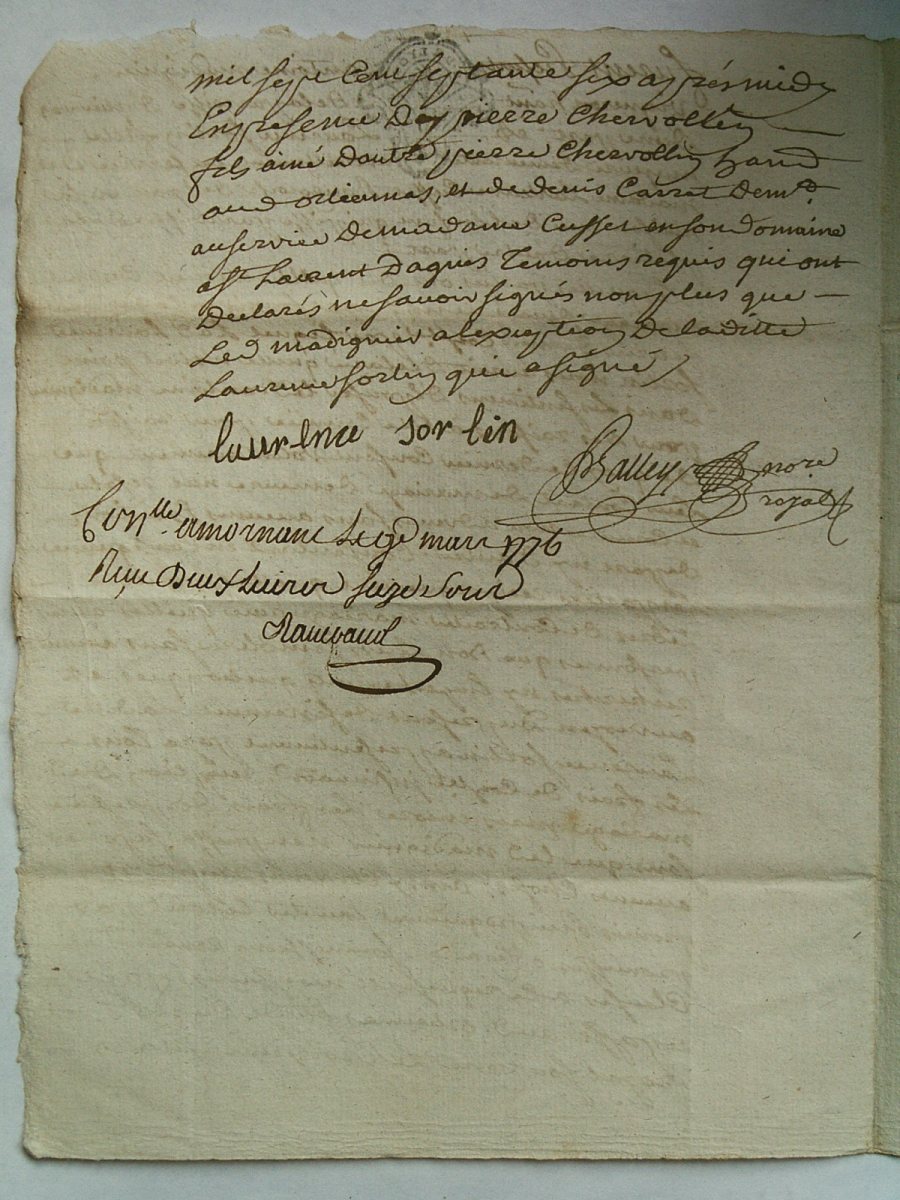 mil sept Cent septante six après midy
En presence De pierre Chervollin
fils ainé Dautre pierre Chervollin
aud orlienas, et de denis Carret Demt.
au service De madame Cusset en son Domaine
a St. Laurent Dagnis Temoins requis qui ont
Declarés ne savoir signés non plus que
Led madignier a lexception De laditte
Laurence sorlin qui a signé
laurence sor lin
Balley nore
royal
Conlle. a mornant Le mars 1776
Reçu Deux Livres seize sour